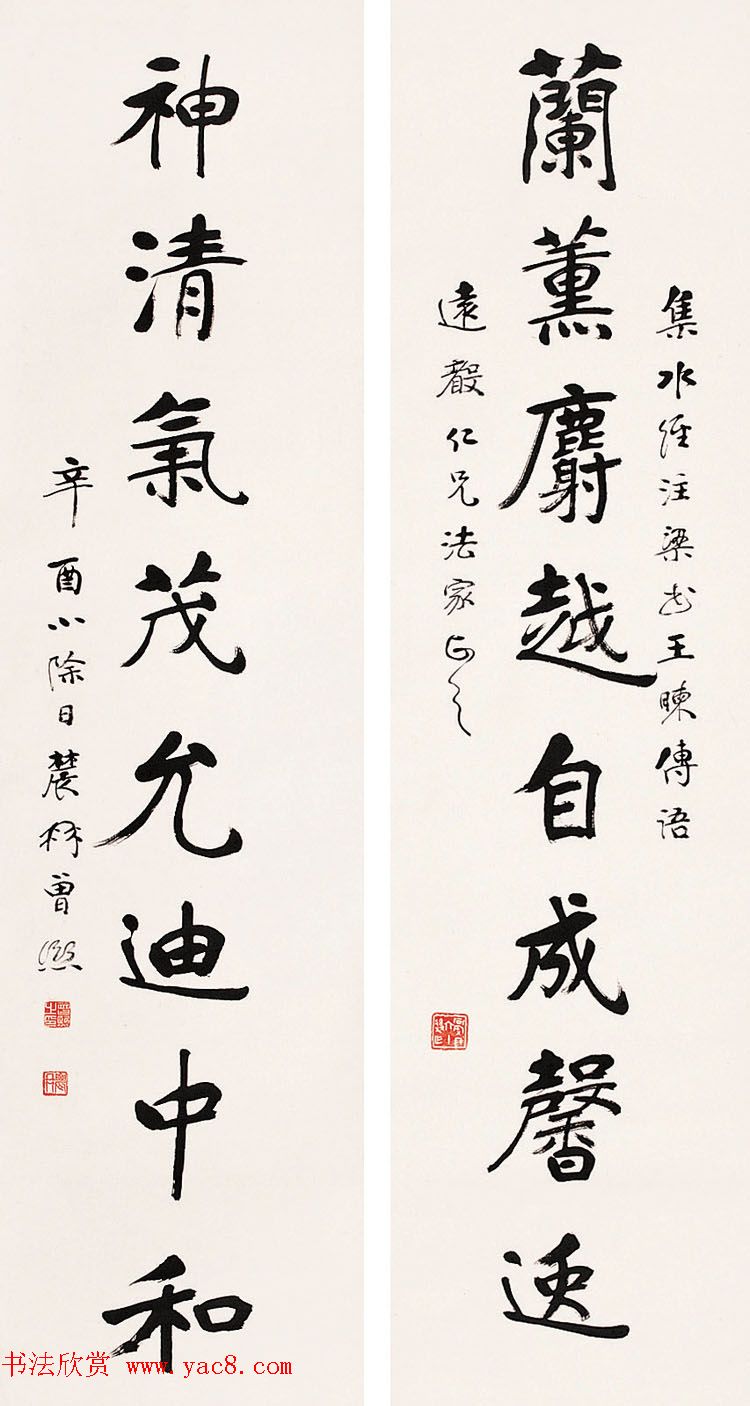 集水经注梁书王暕傳语
蘭薰麝越自成馨
遠觳仁兄法家正之
神清氣茂允迪中和
辛酉小除日農髯曾熙
书法欣赏 www.yac8.com